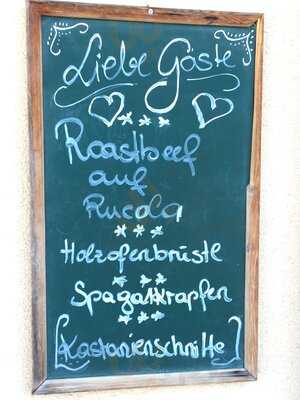 Liebe Gäste
Roastbeef
auf
Rucola
Holzofenbrüstl
Spagatkrapfen
Kastanienschnitte